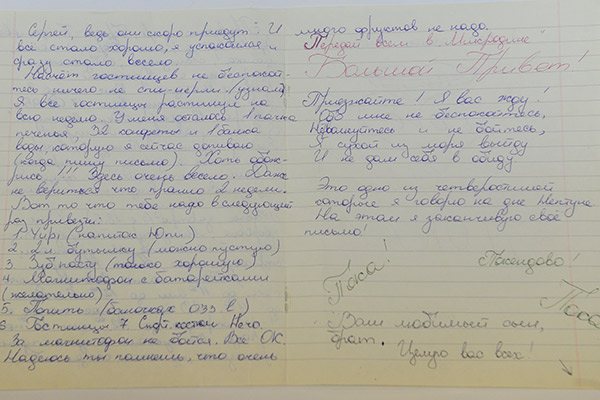 Сергей, ведь они скоро приедут! И
все стало хорошо, я успокоился и
сразу стало весело.
Насчёт гостинцев не беспокой-
тесь ничего не спи-черли. (узнали)
Я все гостинцы растянул на
всю неделю. У меня осталось 1 пачка
печенья. 32 конфеты и 1 банка
воды, которую я сейчас допиваю
(когда пишу письмо). Хоть обож-
рись!!! Здесь очень весело. Даже
не верится что прошло 2 недели.
Вот то что тебе надо в следующей
раз привезти:
1. Yupi (напиток Юпи)
2. 2л бутылку (можно пустую)
3. Зуб. пасту (только хорошую)
4. Магнитофон с батарейками
(желательно)
5. Попить (баночках 0.33 л)
6. Гостинцы 7. Спорт. костюм
За магнитофон не бойтся. Всё ОК.
Надеюсь ты помнешь, что очень
много фруктов не надо.
Передай всем в Микродине
Большой Привет!
Приезжайте! Я вас жду!
Обо мне не беспокойтесь,
Не волнуйтесь и не бойтесь,
Я сухой из моря выйду
И не дам себя в обиду
Это одно из четверостиший
которые я говорю на дне Нептуна
На этом я заканчиваю своё
письмо!
Пока! Покендово!
Пока
Ваш любимый сын,
брат. Целую вас всех!